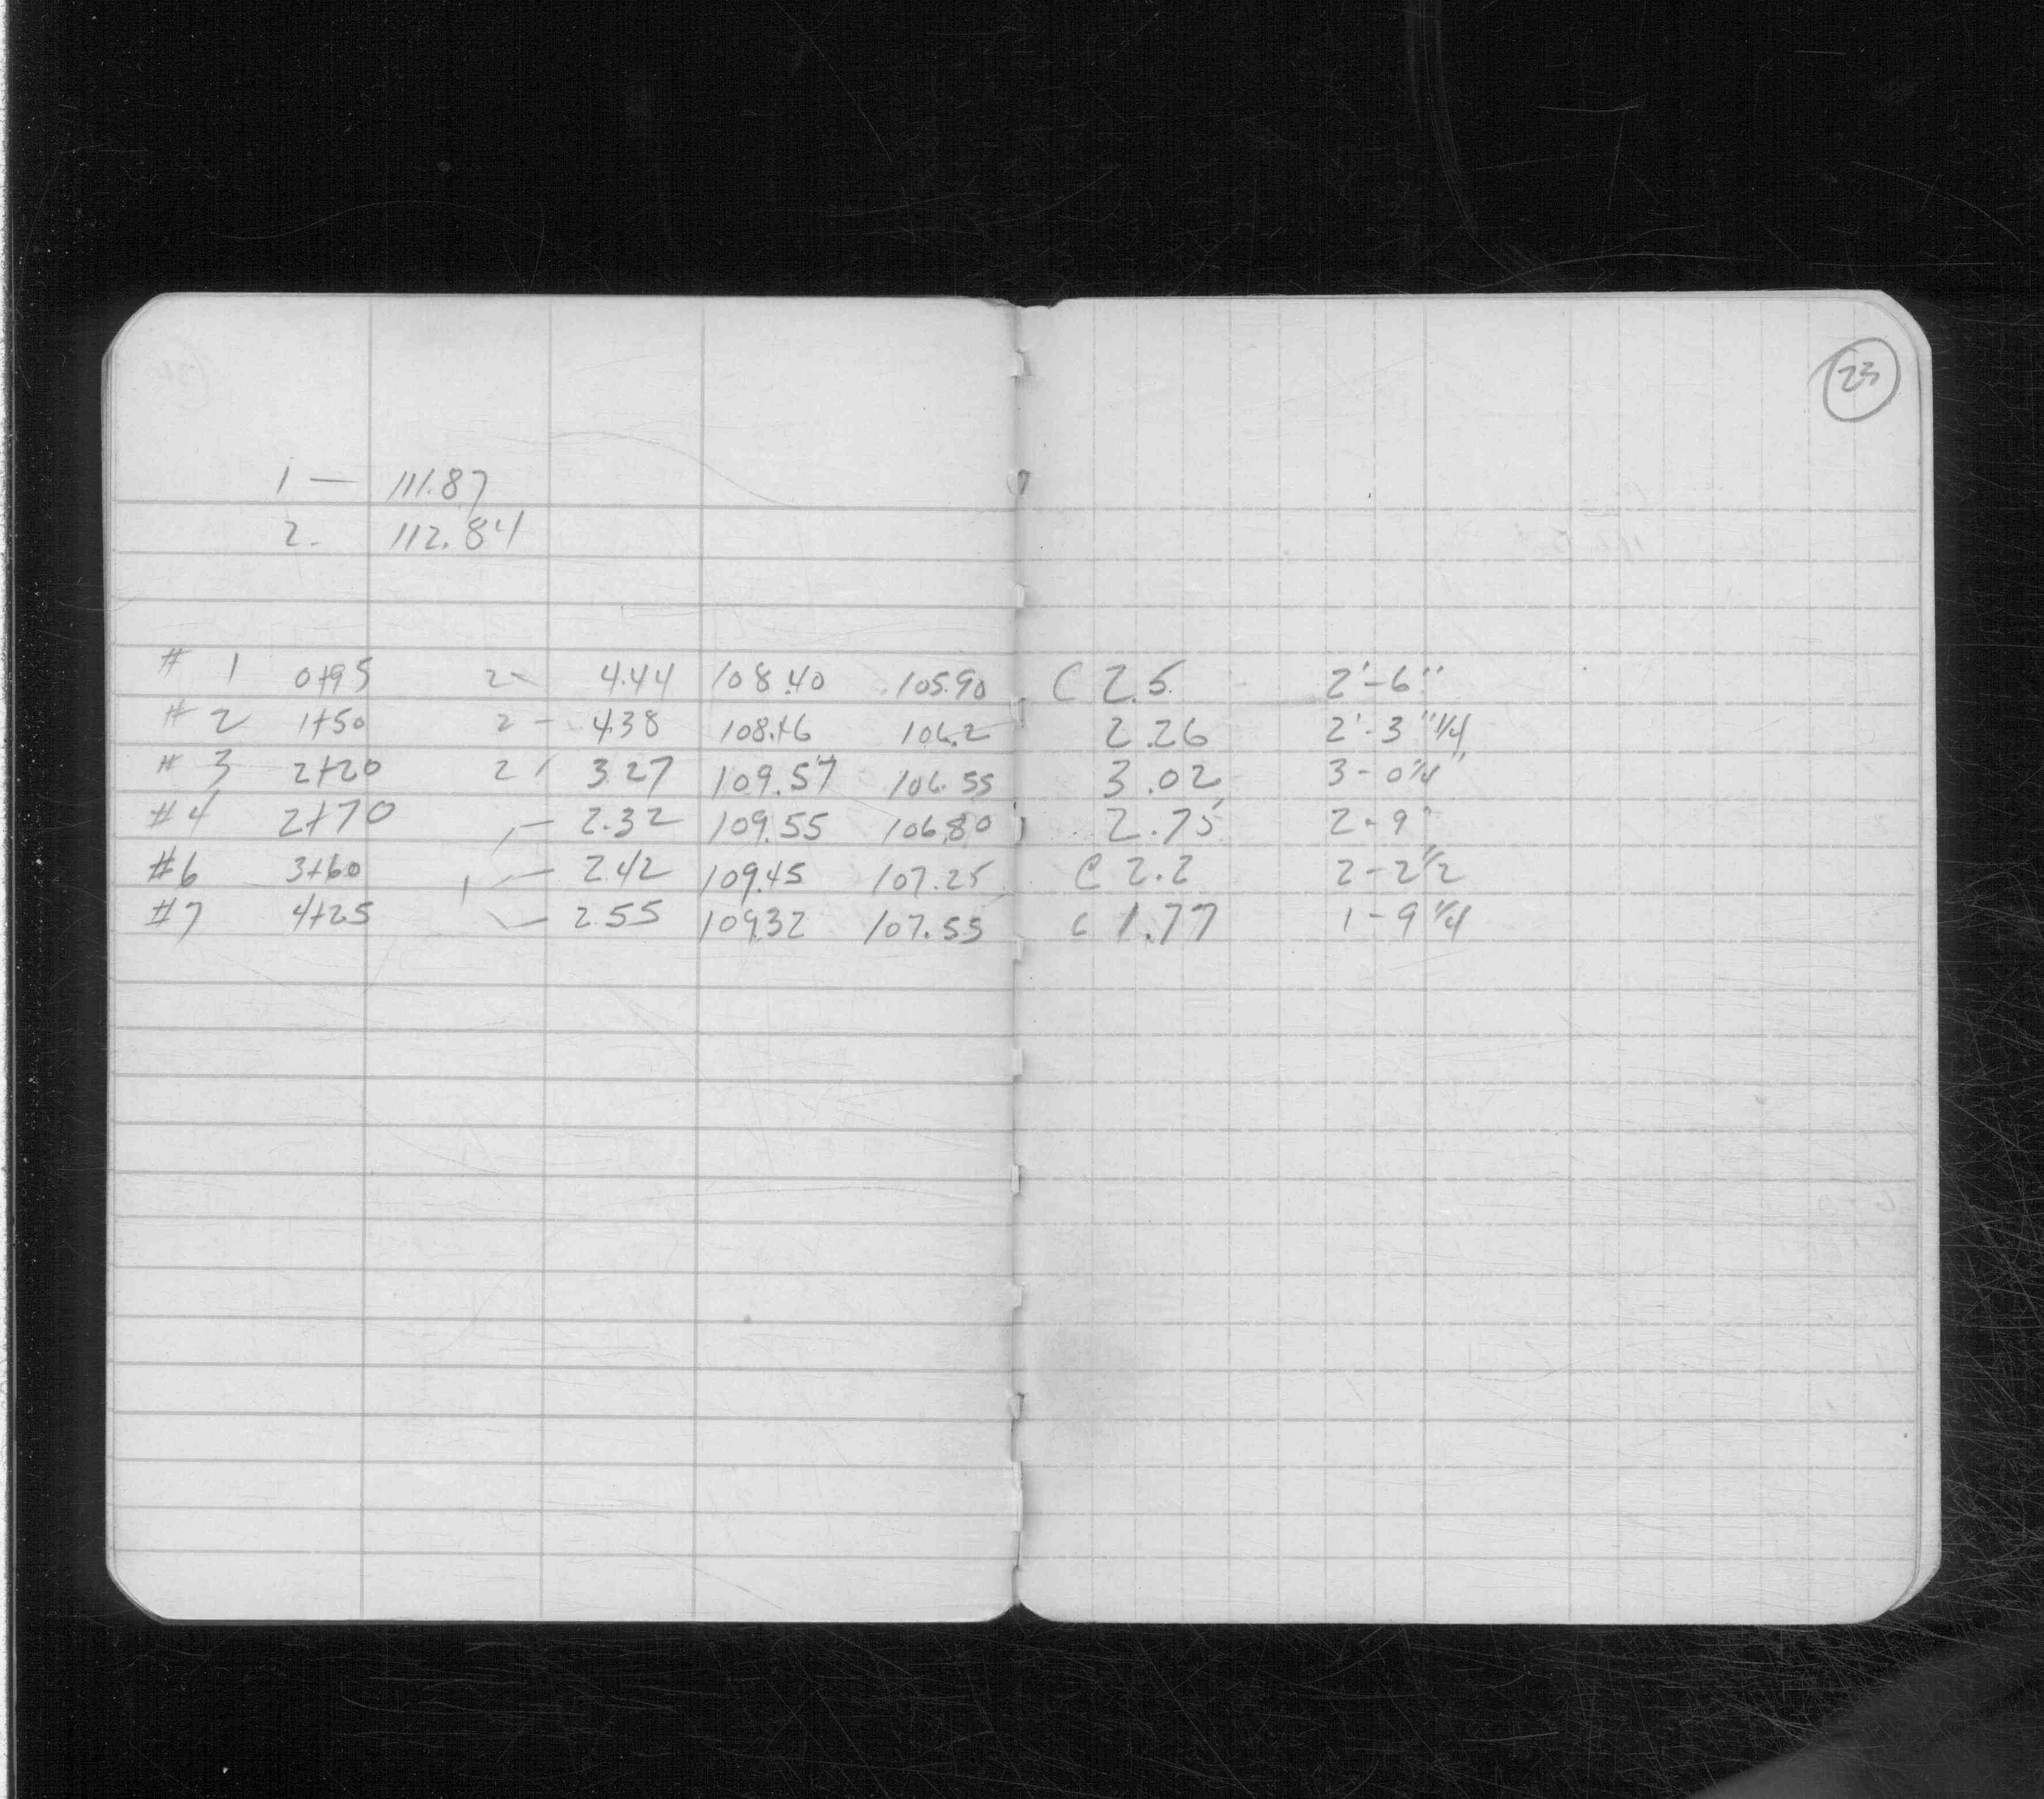 23
1 — 111.87
2. 112.84
# 1 0+95 2- 4.44 108.40 105.90 C 2.5 2'-6"
# 2 1+50 2 - 4.38 108.46 106.2 2.26 2'-3"1/4
# 3 2+20 2 3.27 109.57 106.55 3.02 3-0 1/4"
#4 2+70 - 2.32 109.55 106.80 2.75 2-9"
#6 3+60 1 - 2.42 109.45 107.25 C 2.2 2-2 1/2
#7 4+25 - 2.55 109.32 107.55 C 1.77 1-9 1/4